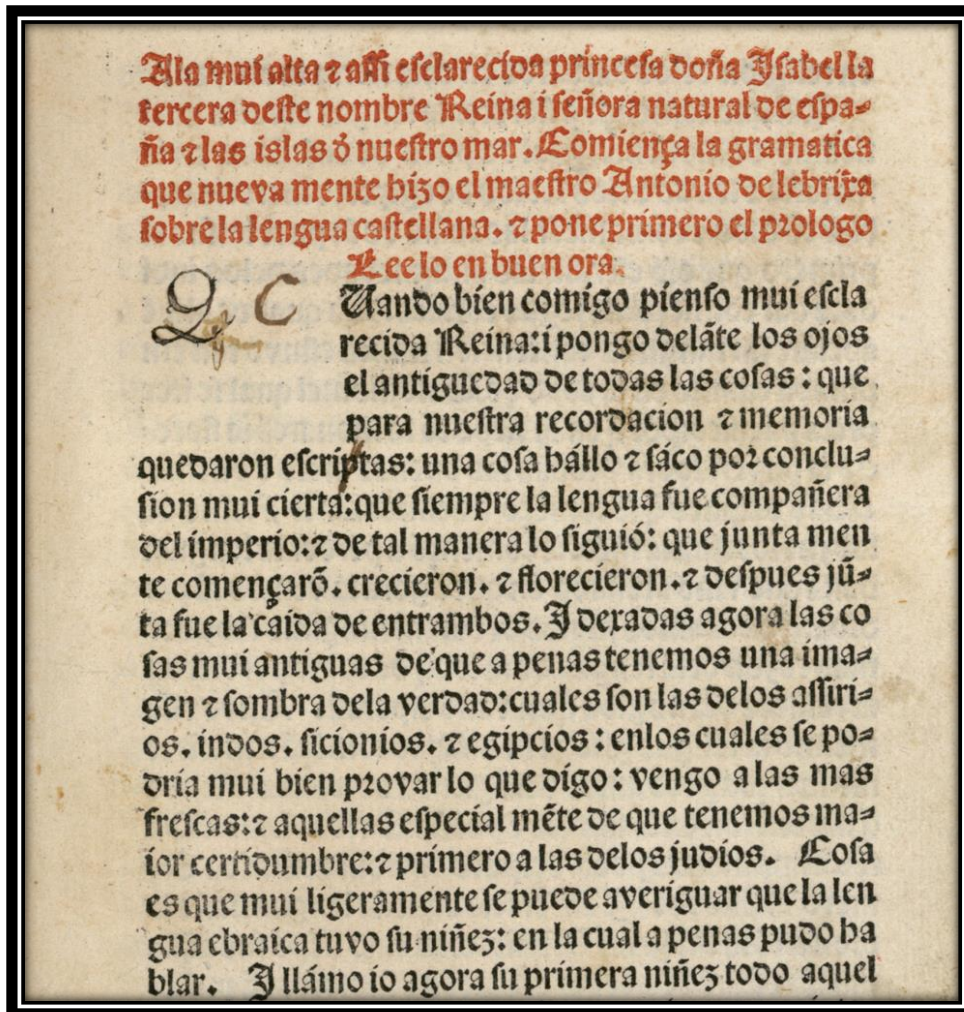 Ala mui alta ⁊ assi esclarecida princesa doña Isabel la
tercera deste nombre Reina i señora natural de espa⸗
ña ⁊ las islas d̓ nuestro mar. Comiença la gramatica
que nueva mente hizo el maestro Antonio de lebrixa
sobre la lengua castellana. ⁊ pone primero el prologo
Lee lo en buen ora.
Q C
Uando bien comigo pienso mui escla
recida Reina: i pongo delãte los ojos
el antiguedad de todas las cosas: que
para nuestra recordacion ⁊ memoria
quedaron escriptas: una cosa hállo ⁊ sáco por conclu⸗
sion mui cierta: que siempre la lengua fue compañera
del imperio: ⁊ de tal manera lo siguió: que junta men
te començarõ. crecieron. ⁊ florecieron. ⁊ despues jũ⸗
ta fue la caida de entrambos. I dexadas agora las co
sas mui antiguas de que a penas tenemos una ima⸗
gen ⁊ sombra dela verdad: cuales son las delos assiri⸗
os. indos. sicionios. ⁊ egipcios: enlos cuales se po⸗
dria mui bien provar lo que digo: vengo a las mas
frescas: ⁊ aquellas especial mẽte de que tenemos ma⸗
ior certidumbre: ⁊ primero a las delos judios. Cosa
es que mui ligeramente se puede averiguar que la len
gua ebraica tuvo su niñez: en la cual a penas pudo ha
blar. I llámo io agora su primera niñez todo aquel